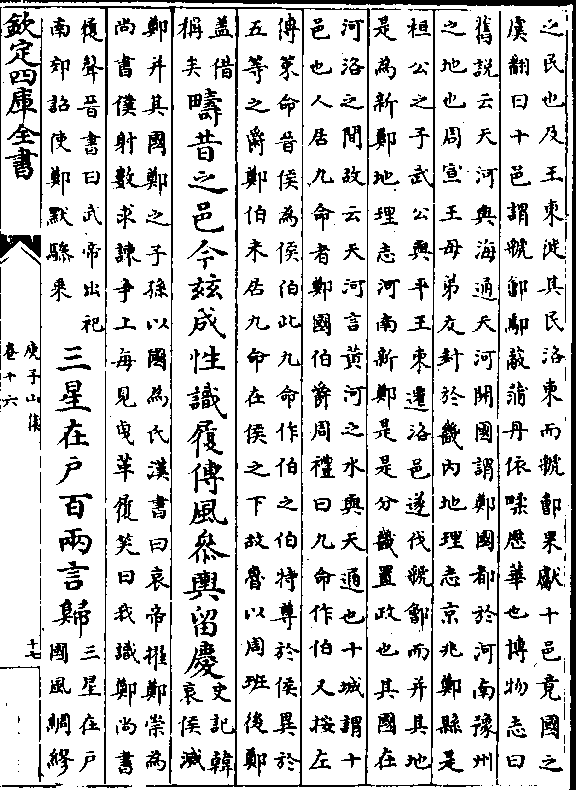 之民也及王東徙其民洛東而虢鄶果獻十邑竟國之
虞翻曰十邑謂虢鄶鄢蔽蒲丹依㽥歷華也博物志曰
舊說云天河與海通天河開國謂鄭國都於河南豫州
之地也周宣王母弟友封於畿内地理志京兆鄭縣是
桓公之子武公與平王東遷洛邑遂伐虢鄶而并其地
是為新鄭地理志河南新鄭是是分畿置政也其國在
河洛之間故云天河言黄河之水與天通也十城謂十
邑也人居九命者鄭國伯爵周禮曰九命作伯又按左
傳策命晉侯為侯伯此九命作伯之伯特尊於侯異於
五等之爵鄭伯未居九命在侯之下故魯以周班後鄭
蓋借
稱矣
疇昔之邑今兹成性識履傳風參輿留慶
史記韓
哀侯滅
鄭并其國鄭之子孫以國為氏漢書曰哀帝擢鄭崇為
尚書僕射數求諫爭上每見曳革履笑曰我識鄭尚書
履聲晉書曰武帝出祀
南郊詔使鄭默驂乘
三星在户百兩言歸
三星在户
國風綢繆
欽定四庫全書
庾子山集
卷十六
十七